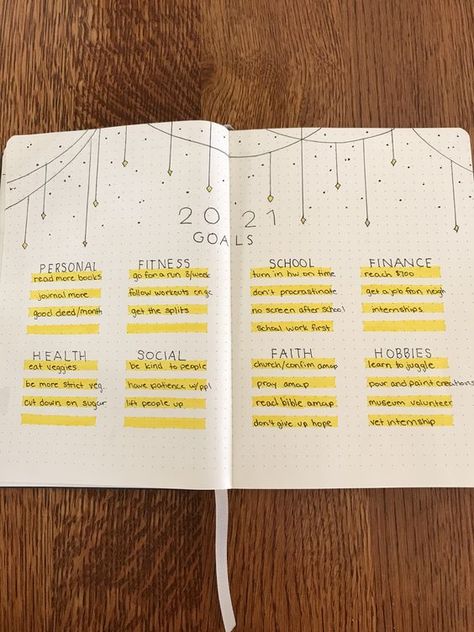 2021
GOALS
PERSONAL
read more books
journal more
good deed/month
FITNESS
go for a run 3/week
follow workouts on gc
get the splits
SCHOOL
turn in hw on time
don't procrastinate
no screen after school
school work first
FINANCE
reach $700
get a job from neigh
internships
HEALTH
eat veggies
be more strict veg.
cut down on sugar
SOCIAL
be kind to people
have patience w/ppl
lift people up
FAITH
church/confirm amap
pray amap
read bible amap
don't give up hope
HOBBIES
learn to juggle
pour and paint creations
museum volunteer
vet internship